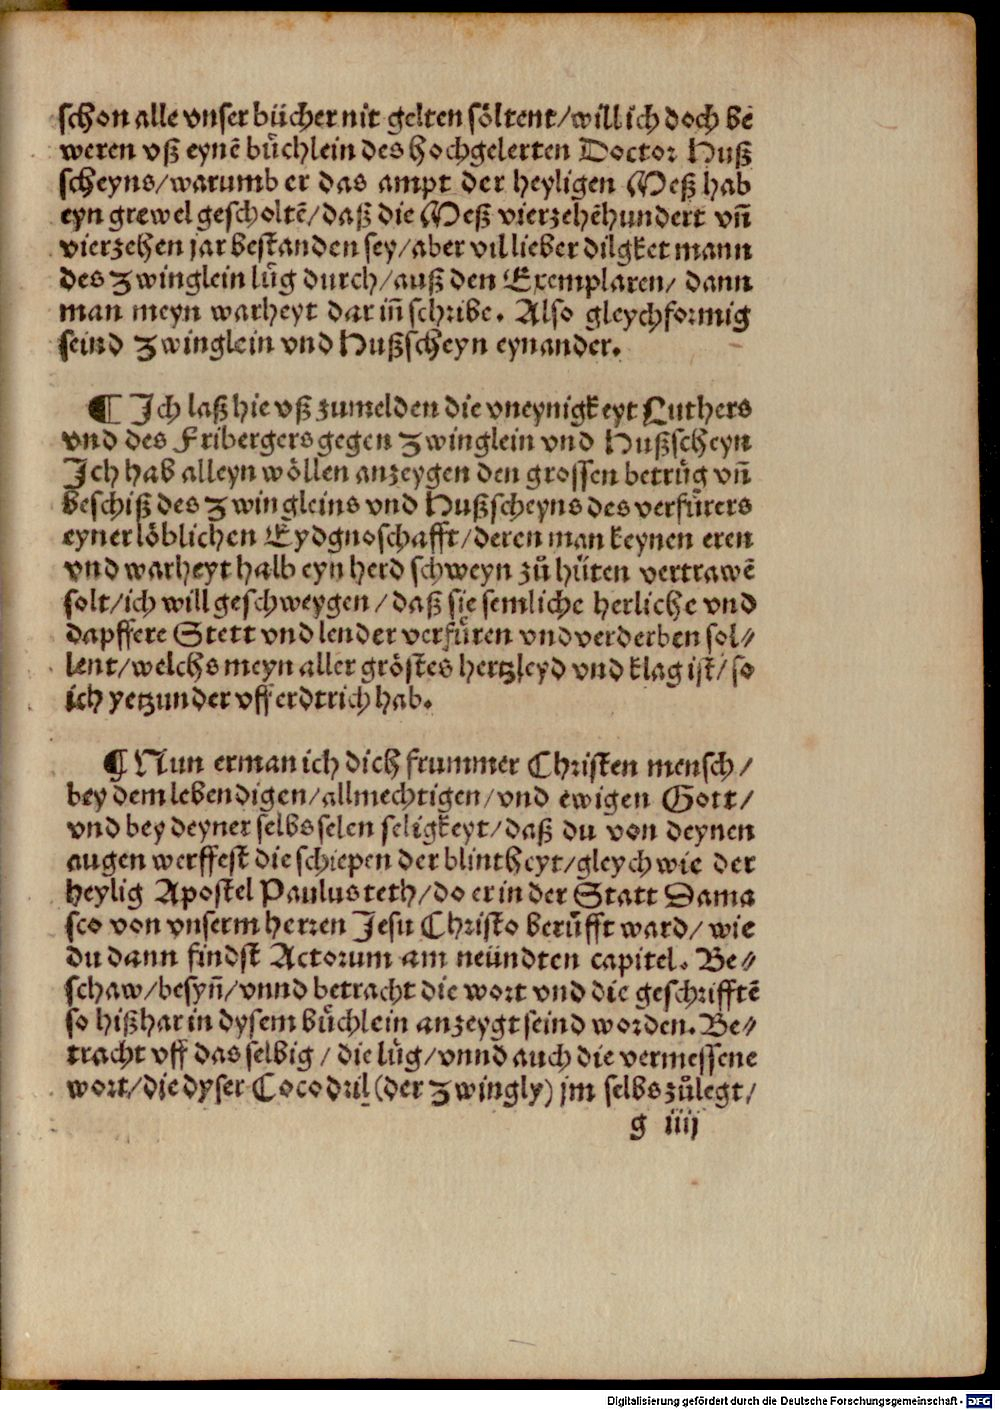 schon alle vnser bücher nit gelten söltent/will ich doch be
weren vß eynē bůchlein des hochgelerten Doctor Huß
scheyns/warumb er das ampt der heyligen Meß hab
eyn grewel gescholtē/daß die Meß vierzehēhundert vn̄
vierzehen jar bestanden sey/aber vil lieber dilgket mann
des Zwinglein lůg durch/auß den Exemplaren/ dann
man meyn warheyt dar in̄ schribe. Also gleychformig
seind Zwinglein vnd Hußscheyn eynander.
¶ Ich laß hie vß zumelden die vneynigkeyt Luthers
vnd des Fribergers gegen Zwinglein vnd Hußscheyn
Ich hab alleyn wöllen anzeygen den grossen betrůg vn̄
beschiß des Zwingleins vnd Hußscheyns des verfůrers
eyner löblichen Eydgnoschafft/deren man keynen eren
vnd warheyt halb eyn herd schweyn zů hůten vertrawē
solt/ich will geschweygen/daß sie semliche herliche vnd
dapffere Stett vnd lender verfůren vnd verderben sol⸗
lent/welchs meyn aller gröstes hertzleyd vnd klag ist/so
ich yetzunder vff erdtrich hab.
¶ Nun erman ich dich frummer Christen mensch/
bey dem lebendigen/allmechtigen/vnd ewigen Gott/
vnd bey deyner selbs selen seligkeyt/daß du von deynen
augen werffest die schiepen der blintheyt/gleych wie der
heylig Apostel Paulus teth/do er in der Statt Dama
sco von vnserm herren Jesu Christo berůfft ward/wie
du dann findst Actorum am neündten capitel. Be⸗
schaw/besyn̄/vnnd betracht die wort vnd die geschrifftē
so hißhar in dysem bůchlein anzeygt seind worden. Be⸗
tracht vff das selbig/die lůg/vnnd auch die vermessene
wort/die dyser Cocodril (der Zwingly) jm selbs zůlegt/
g iiij
Digitalisierung gefördert durch die Deutsche Forschungsgemeinschaft - DFG